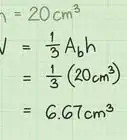 h = 20cm³
V = 1/3 Abh
= 1/3 (20cm³)
= 6.67cm³